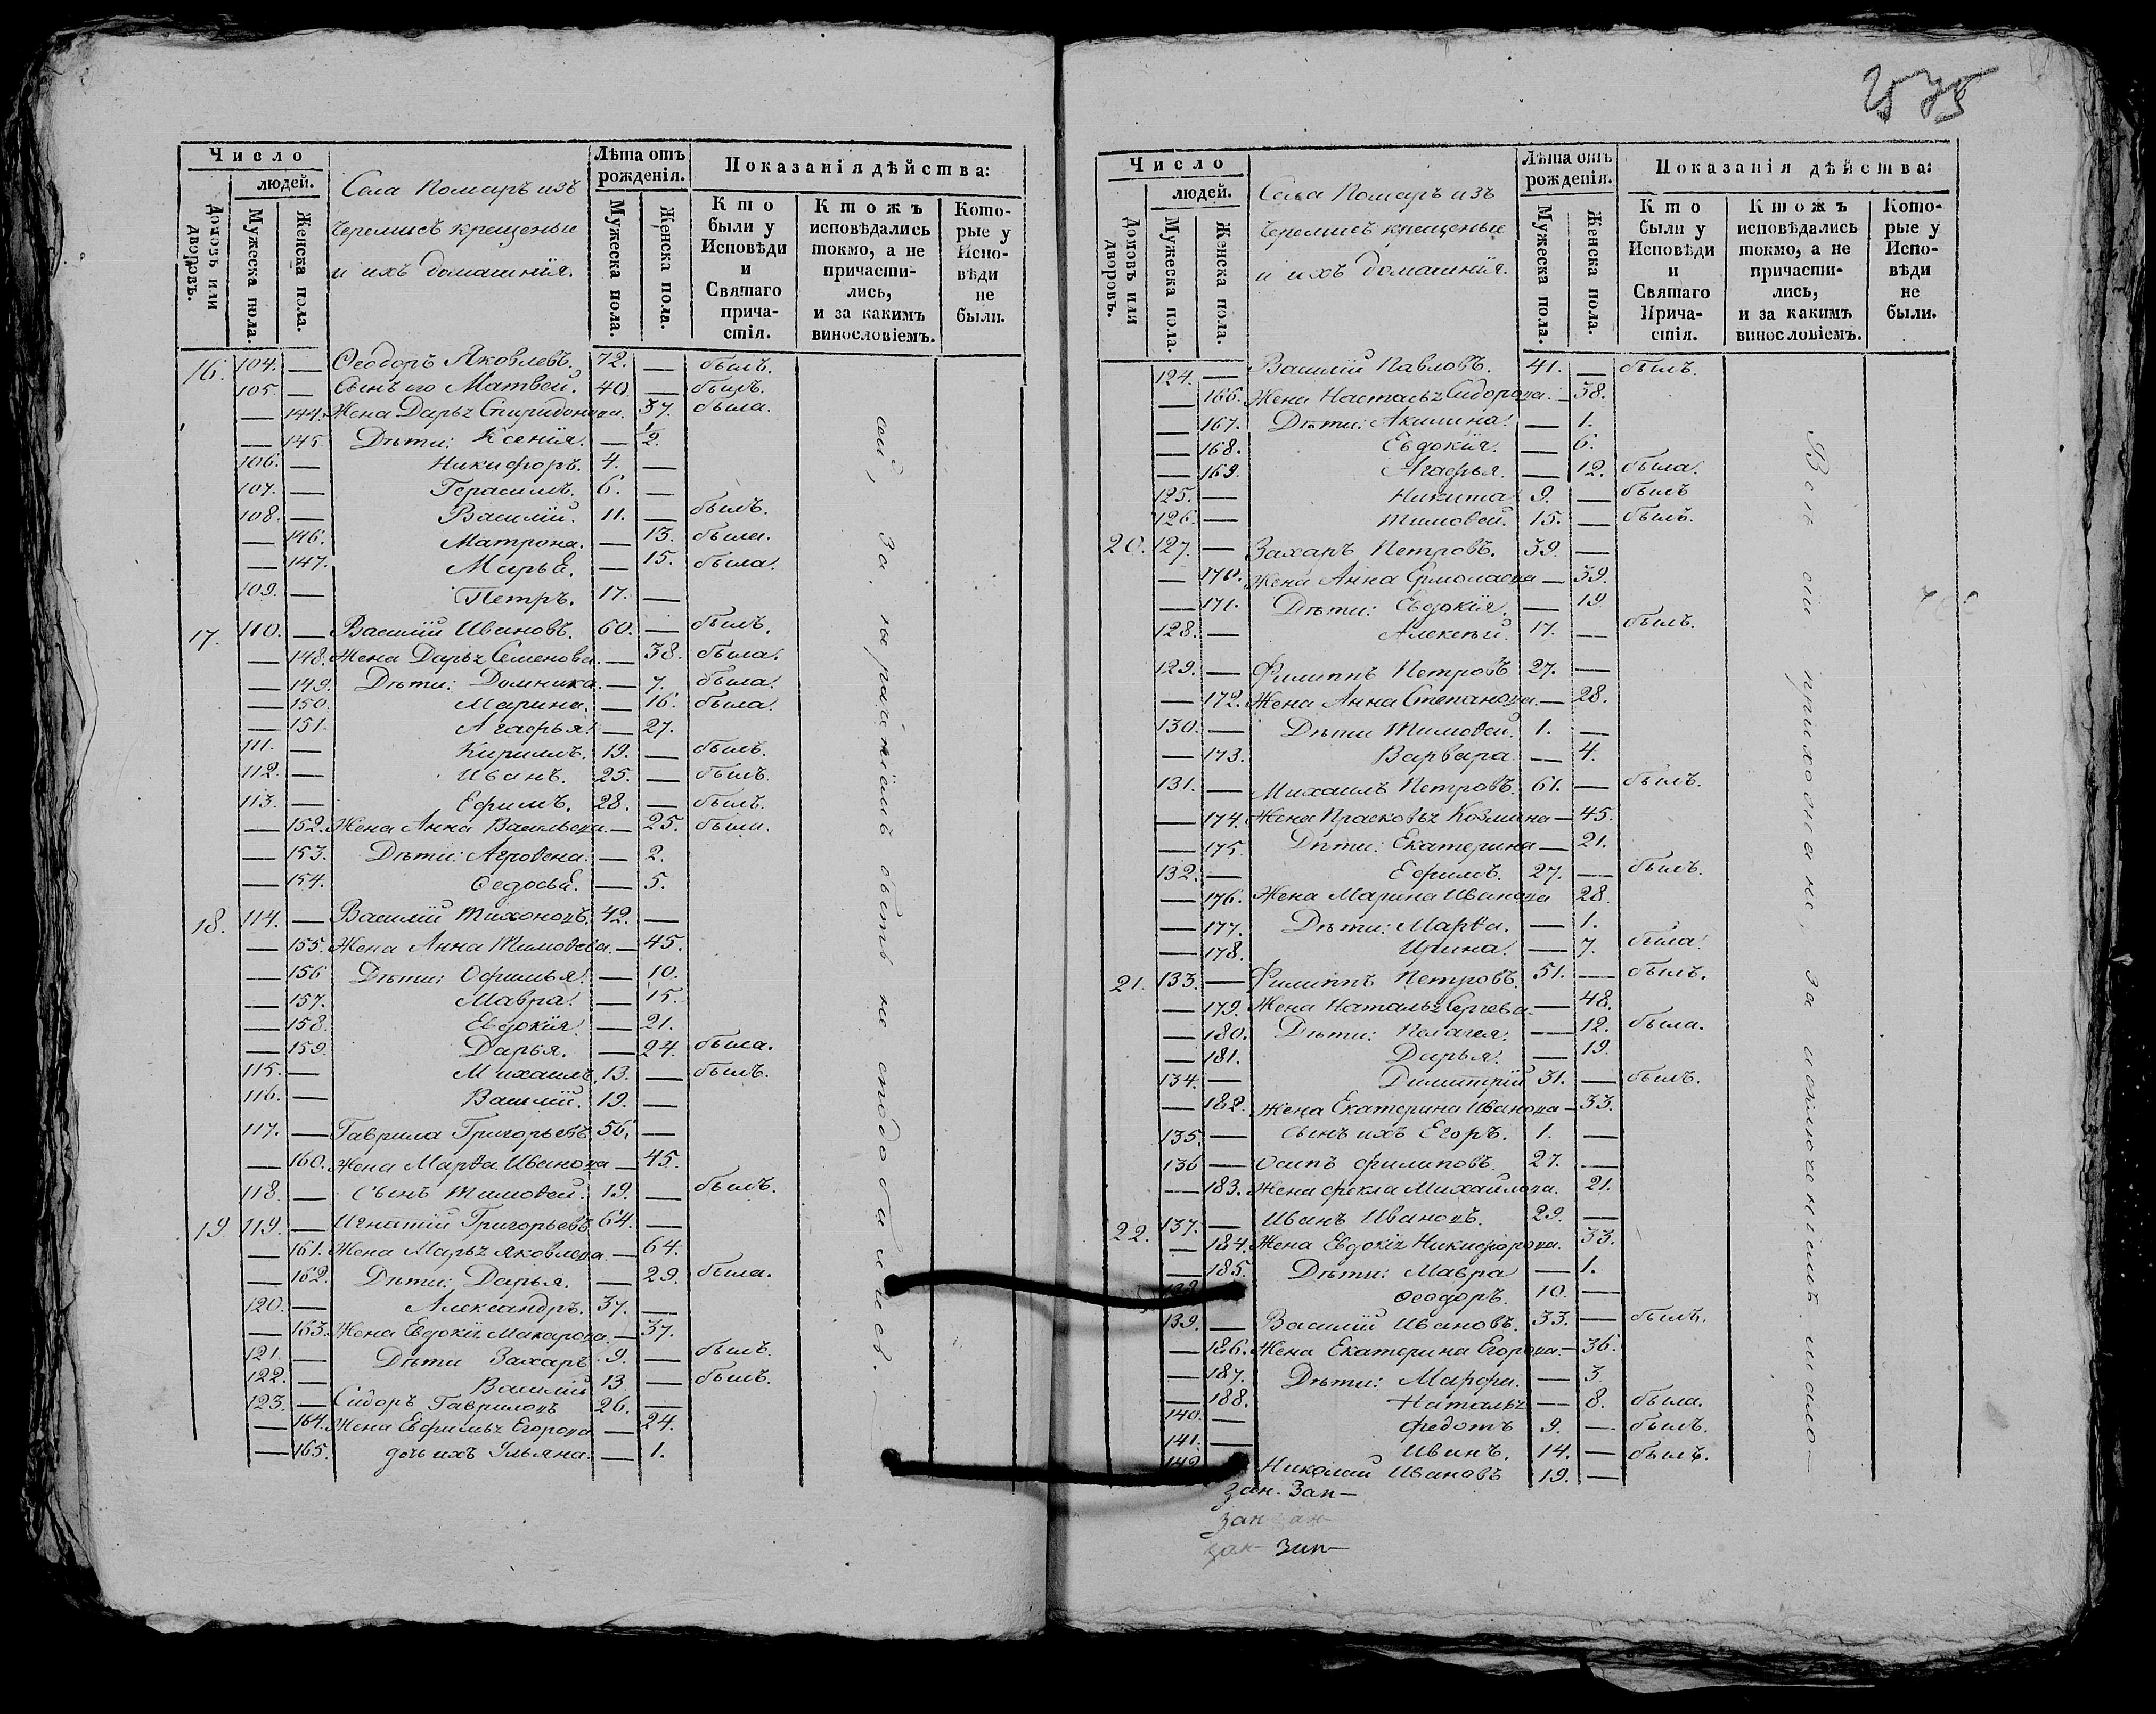 2575
Число
людей.
Домовъ или дворовъ.
Мужеска пола.
Женска пола.
Села Помаръ изъ
черемисъ крещеные
и ихъ домашнія.
Лѣта отъ рожденія.
Мужеска пола.
Женска пола.
Показанія дѣйства:
Кто были у Исповѣди и Святаго причастія.
Ктожъ исповѣдались токмо, а не причастились, и за какимъ винословіемъ.
Которые у Исповѣди не были.
16. 104. — Ѳеодоръ Яковлевъ. 72. — былъ.
105. — Сынъ его Матвей. 40. — былъ.
— 144. Жена Дарьѧ Спиридонова. 37. была.
— 145 Дѣти: Ксенія. — ½.
106. — Никифоръ. 4. —
107. — Герасимъ. 6. —
108. — Василій. 11. — былъ.
— 146. Матрона. — 13. была.
— 147. Марья. — 15. была.
109. — Петръ. 17. —
17. 110. — Василій Ивановъ. 60. — былъ.
— 148. Жена Дарьѧ Семенова. — 38. была.
— 149. Дѣти: Домника. — 7. была.
— 150. Марина. — 16. была.
— 151. Агафья. — 27.
111. — Кириллъ. 19. — былъ.
112. — Иванъ. 25. — былъ.
113. — Ефимъ. 28. — былъ.
— 152. Жена Анна Васильева. — 25. была.
— 153. Дѣти: Агрофена. — 2.
— 154. Ѳедосья. — 5.
18. 114. — Василій Тихоновъ. 42. —
— 155. Жена Анна Тимоѳеева. — 45.
— 156 Дѣти: Офимья. — 10.
— 157. Мавра. — 15.
— 158. Евдокія. — 21.
— 159. Дарья. — 24. была.
115. — Михаилъ. 13. — былъ.
116. — Василій. 19. —
117. — Гаврила Григорьевъ 56. —
— 160. Жена Марѳа Иванова — 45.
118. — Сынъ Тимоѳей. 19. — былъ.
19 119. — Игнатій Григорьевъ 64. —
— 161. Жена Марьѧ Яковлева. — 64.
— 162. Дѣти: Дарья. — 29. была.
120. — Александръ. 37. —
— 163. Жена Евдокія Макарова. — 37.
121. — Дѣти Захаръ 9. — былъ.
122. — Василій 13 — былъ.
123. — Сидоръ Гавриловъ 26. —
— 164. Жена Евфимьѧ Егорова — 24.
— 165. дочь ихъ Ульяна. — 1.
за нераденіемъ быть не сподобились.
Число
людей.
Домовъ или дворовъ.
Мужеска пола.
Женска пола.
Села Помаръ изъ
черемисъ крещеные
и ихъ домашнія.
Лѣта отъ рожденія.
Мужеска пола.
Женска пола.
Показанія дѣйства:
Кто были у Исповѣди и Святаго Причастія.
Ктожъ исповѣдались токмо, а не причастились, и за какимъ винословіемъ.
Которые у Исповѣди не были.
124. — Василій Павловъ. 41. — былъ.
— 166. Жена Настасьѧ Сидорова. — 38.
— 167. Дѣти: Акилина. — 1.
— 168. Евдокія. — 6.
— 169. Агафья. — 12. была.
125. — Никита 9. — былъ
126. — Тимоѳей. 15. — былъ.
20. 127. — Захаръ Петровъ. 39. —
— 170. Жена Анна Ермолаева — 39.
— 171. Дѣти: Евдокія. — 19.
128. — Алексѣй. 17. — былъ.
129. — Филиппъ Петровъ 27. —
— 172. Жена Анна Степанова. — 28.
130. — Дѣти Тимоѳей. 1. —
— 173. Варвара. — 4.
131. — Михаилъ Петровъ. 61. — былъ.
— 174. Жена Прасковьѧ Козмина — 45.
— 175. Дѣти: Екатерина — 21.
132. — Ефимъ. 27. — былъ.
— 176. Жена Марина Иванова 28.
— 177. Дѣти: Марѳа. — 1.
— 178. Ирина. — 7. была.
21. 133. — Филиппъ Петровъ. 51. — былъ.
— 179. Жена Натальѧ Сергева. — 48.
— 180. Дѣти: Палагея. — 12. была.
— 181. Дарья. — 19.
134. — Димитрій 31. — былъ.
— 182. Жена Екатерина Иванова — 33.
135. — Сынъ ихъ Егоръ. 1. —
136 — Осипъ Филиповъ. 27. —
— 183. Жена Фекла Михайлова. 21.
22. 137. — Иванъ Ивановъ. 29. —
— 184. Жена Евдокія Никифорова. 33.
— 185. Дѣти: Мавра — 1.
138. — Ѳеодоръ. 10. —
139. — Василій Ивановъ. 33. — былъ.
— 186. Жена Екатерина Егорова. — 36.
— 187. Дѣти: Марфа. — 3
— 188. Натальѧ — 8. была.
140. — Федотъ 9. — былъ.
141. — Иванъ. 14. — былъ.
142. Николай Ивановъ 19. —
Всѣ сіи прихожане, за исключеніемъ мало—
зан. Зап—
зан
зап—